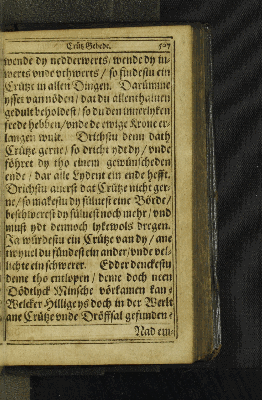 Crütz Gebede. 507
wende dy nedderwerts / wende dy in-
werts vnde vthwerts / so findestu ein
Crütze in allen Dingen. Darümme
ysset van nöden / dat du allenthaluen
gedult beholdest / so du den innerlyken
frede hebben / vnde de ewige Krone er-
langen wult. Drichstu denn dath
Crütze gerne / so dricht ydt dy / vnde
föhret dy tho einem gewünscheden
ende / dar alle Lydent ein ende hefft.
Drichstu auerst dat Crütze nicht ger-
ne / so makestu dy süluest eine Börde /
beschwerest dy sülüest noch mehr / vnd
must ydt dennoch lykewols dregen.
Ja würdestu ein Crütze van dy / ane
twyuel du fündest ein ander / vnde vel-
lichte ein schwerer. Edder denckestu
deme tho entlopen / deme doch neen
Dödtlyck Minsche vörkamen kan?
Welcker Hillige ys doch in der Werlt
ane Crütze vnde Dröffsal gefunden?
Nad em-